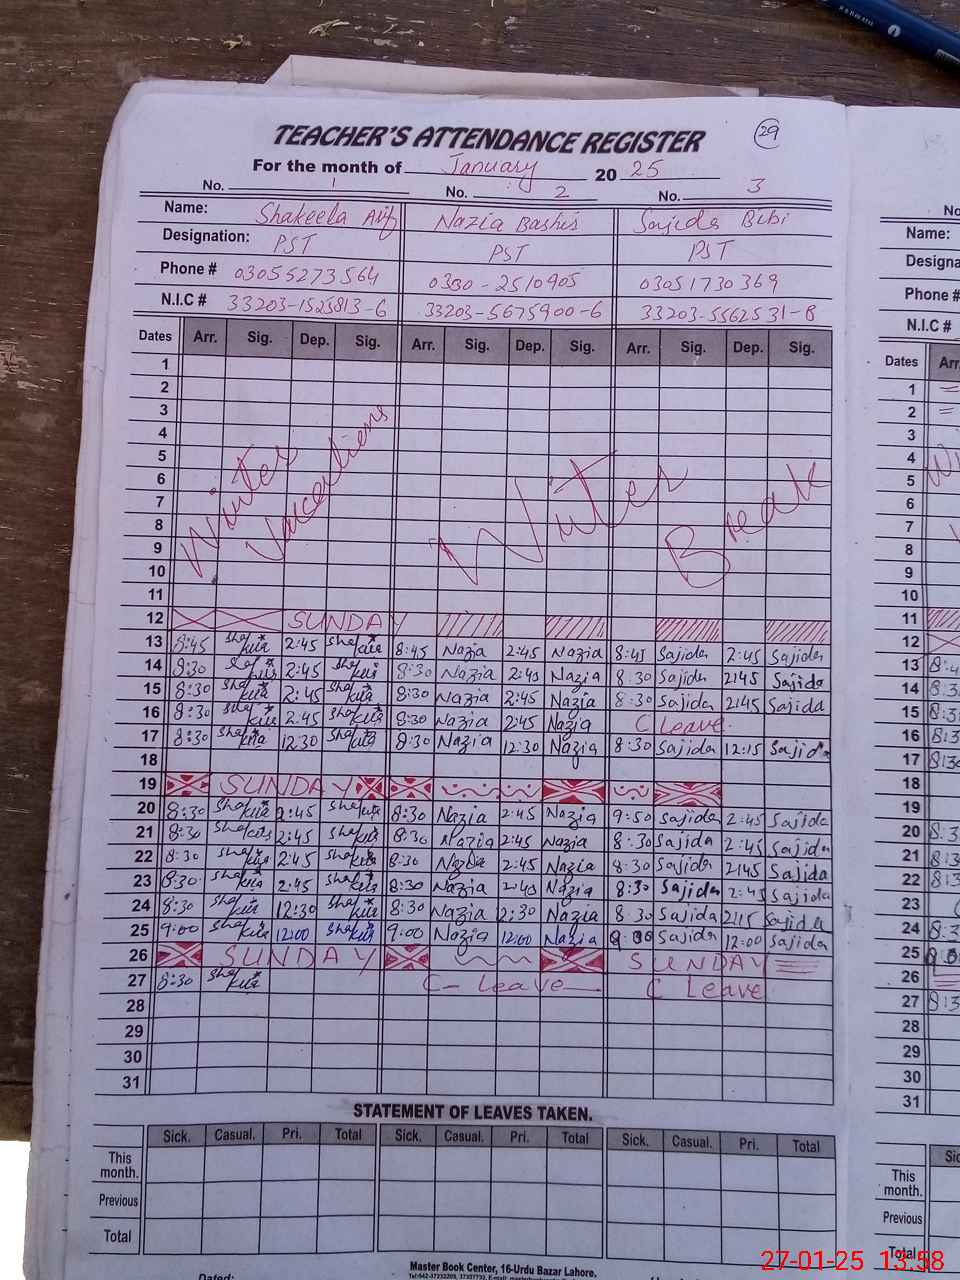 TEACHER'S ATTENDANCE REGISTER 29
For the month of January 2025
No. 1 No. 2 No. 3
Name: Shakeela Arif Nazia Bashir Sajida Bibi
Designation: PST PST PST
Phone # 03055273564 0300-2510905 03051730369
N.I.C # 33203-1525813-6 33203-5675900-6 33203-5562531-8
Dates Arr. Sig. Dep. Sig. Arr. Sig. Dep. Sig. Arr. Sig. Dep. Sig.
1
2
3
4
5
6
7
8
9
10
11
Winter Vaccations Winter Break
12 SUNDAY
13 8:45 2:45 8:45 Nazia 2:45 Nazia 8:45 Sajida 2:45 Sajida
14 8:30 2:45 8:30 Nazia 2:45 Nazia 8:30 Sajida 2:45 Sajida
15 8:30 2:45 8:30 Nazia 2:45 Nazia 8:30 Sajida 2:45 Sajida
16 8:30 2:45 8:30 Nazia 2:45 Nazia C Leave.
17 8:30 12:30 8:30 Nazia 12:30 Nazia 8:30 Sajida 12:15 Sajida
18
19 SUNDAY
20 8:30 2:45 8:30 Nazia 2:45 Nazia 9:50 Sajida 2:45 Sajida
21 8:30 2:45 8:30 Nazia 2:45 Nazia 8:30 Sajida 2:45 Sajida
22 8:30 2:45 8:30 Nazia 2:45 Nazia 8:30 Sajida 2:45 Sajida
23 8:30 2:45 8:30 Nazia 2:45 Nazia 8:30 Sajida 2:45 Sajida
24 8:30 12:30 8:30 Nazia 12:30 Nazia 8:30 Sajida Sajida
25 9:00 12:00 9:00 Nazia 12:00 Nazia 9:00 Sajida 12:00 Sajida
26 SUNDAY SUNDAY
27 8:30 C- Leave C Leave
28
29
30
31
STATEMENT OF LEAVES TAKEN.
Sick. Casual. Pri. Total Sick. Casual. Pri. Total Sick. Casual. Pri. Total
This month.
Previous
Total
Master Book Center, 16-Urdu Bazar Lahore.
Dated:
No
Name:
Designa
Phone #
N.I.C #
Dates Arr
1
2
3
4
5
7
8
9
10
11
12
13
14
15
16
17
18
19
20
21
22
23
24
25
26
27
28
29
30
31
This month.
Previous
Total
27-01-25 13:58